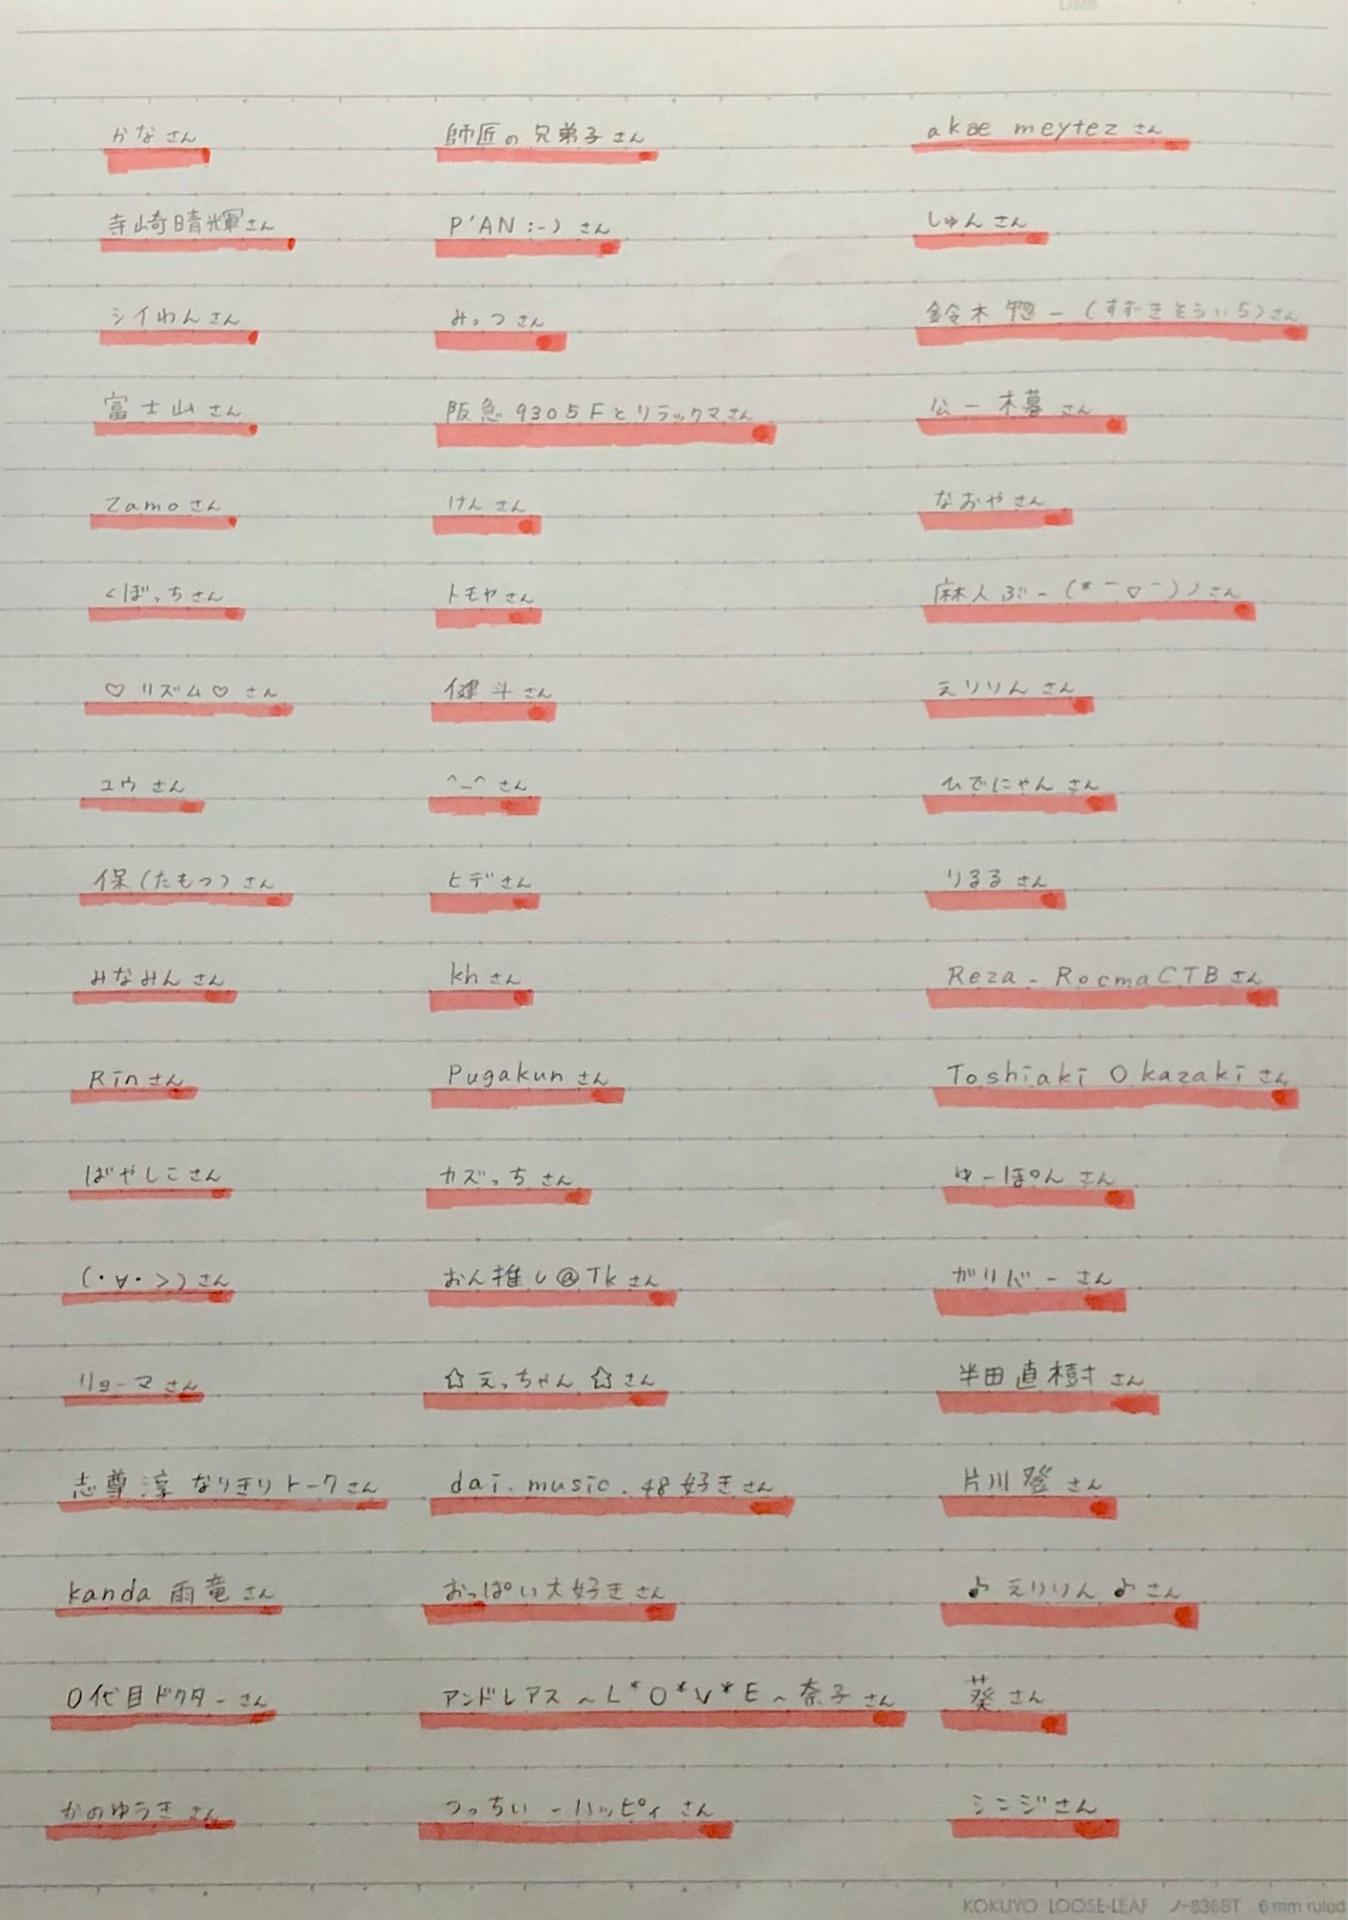 Date
かなさん 師匠の兄弟子さん akae meytezさん
寺崎晴輝さん P'AN:-)さん しゅんさん
シイわんさん みっつさん 鈴木惣一(すずきそういち)さん
富士山さん 阪急9305Fとリラックマさん 公一木暮さん
Zamoさん けんさん なおやさん
くぼっちさん トモヤさん 麻人ぶー(*￣▽￣)ノさん
♡リズム♡さん 健斗さん えりりんさん
ユウさん ^_^さん ひでにゃんさん
保(たもつ)さん ヒデさん りるるさん
みなみんさん khさん Reza-RocmaCTBさん
Rinさん Pugakunさん Toshiaki Okazakiさん
ばやしこさん カズっちさん ゆーぽんさん
(・∀・>)さん おん推し@Tkさん ガリバーさん
リョーマさん ☆えっちゃん☆さん 半田直樹さん
志尊淳なりきりトークさん dai.music.48好きさん 片川登さん
kanda雨竜さん おっぱい大好きさん ♪えりりん♪さん
0代目ドクターさん アンドレアス~L*O*V*E~奈子さん 葵さん
かのゆうきさん つっちぃーハッピィさん シンジさん
KOKUYO LOOSE-LEAF ノ-836BT 6mm ruled